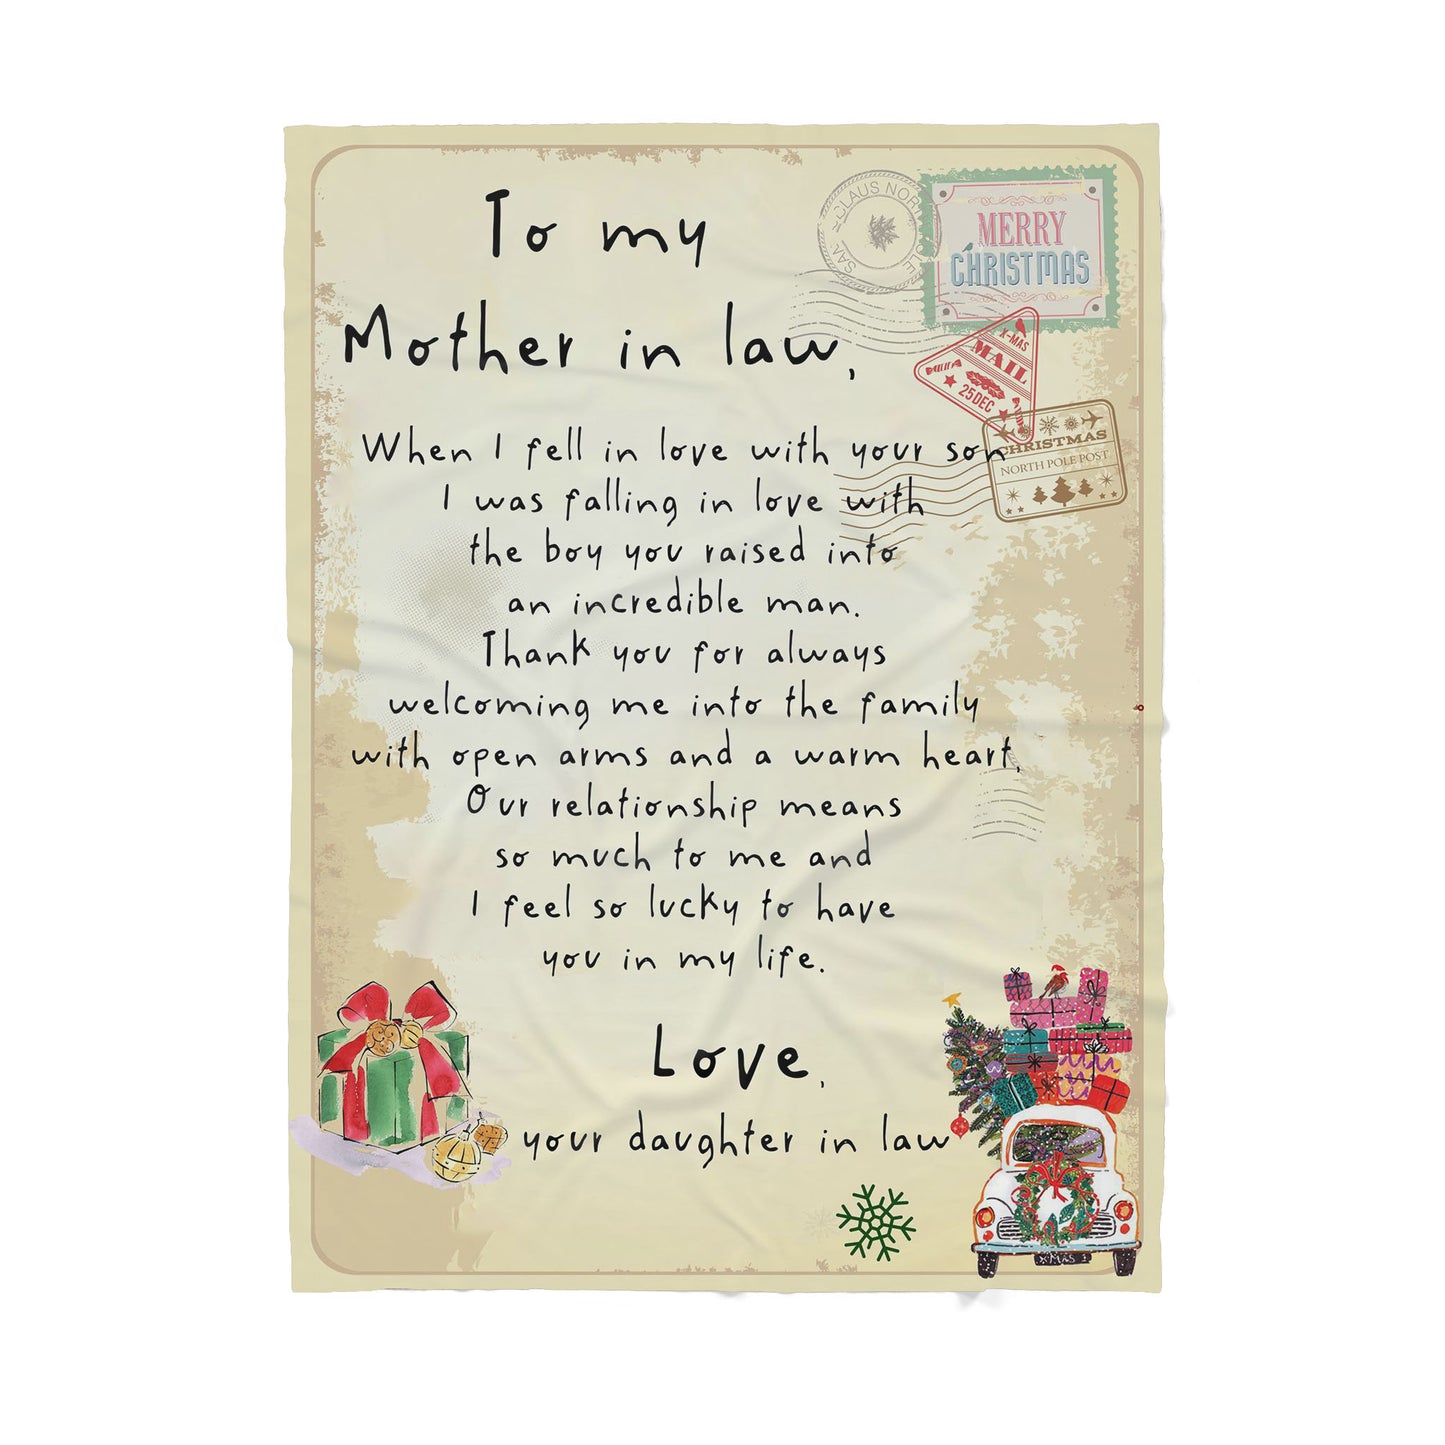 To my
Mother in law,
When I fell in love with your son
I was falling in love with
the boy you raised into
an incredible man.
Thank you for always
welcoming me into the family
with open arms and a warm heart.
Our relationship means
so much to me and
I feel so lucky to have
you in my life.
Love,
your daughter in law
MERRY
CHRISTMAS
X-MAS
MAIL
25 DEC
CHRISTMAS
NORTH POLE POST
XMAS